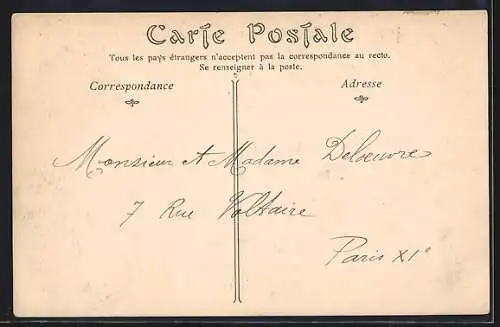 Carte Postale
Tous les pays étrangers n'acceptent pas la correspondance au recto.
Se renseigner à la poste.
Correspondance
Adresse
Monsieur et Madame Deloeuvre
7 Rue Voltaire
Paris XIe